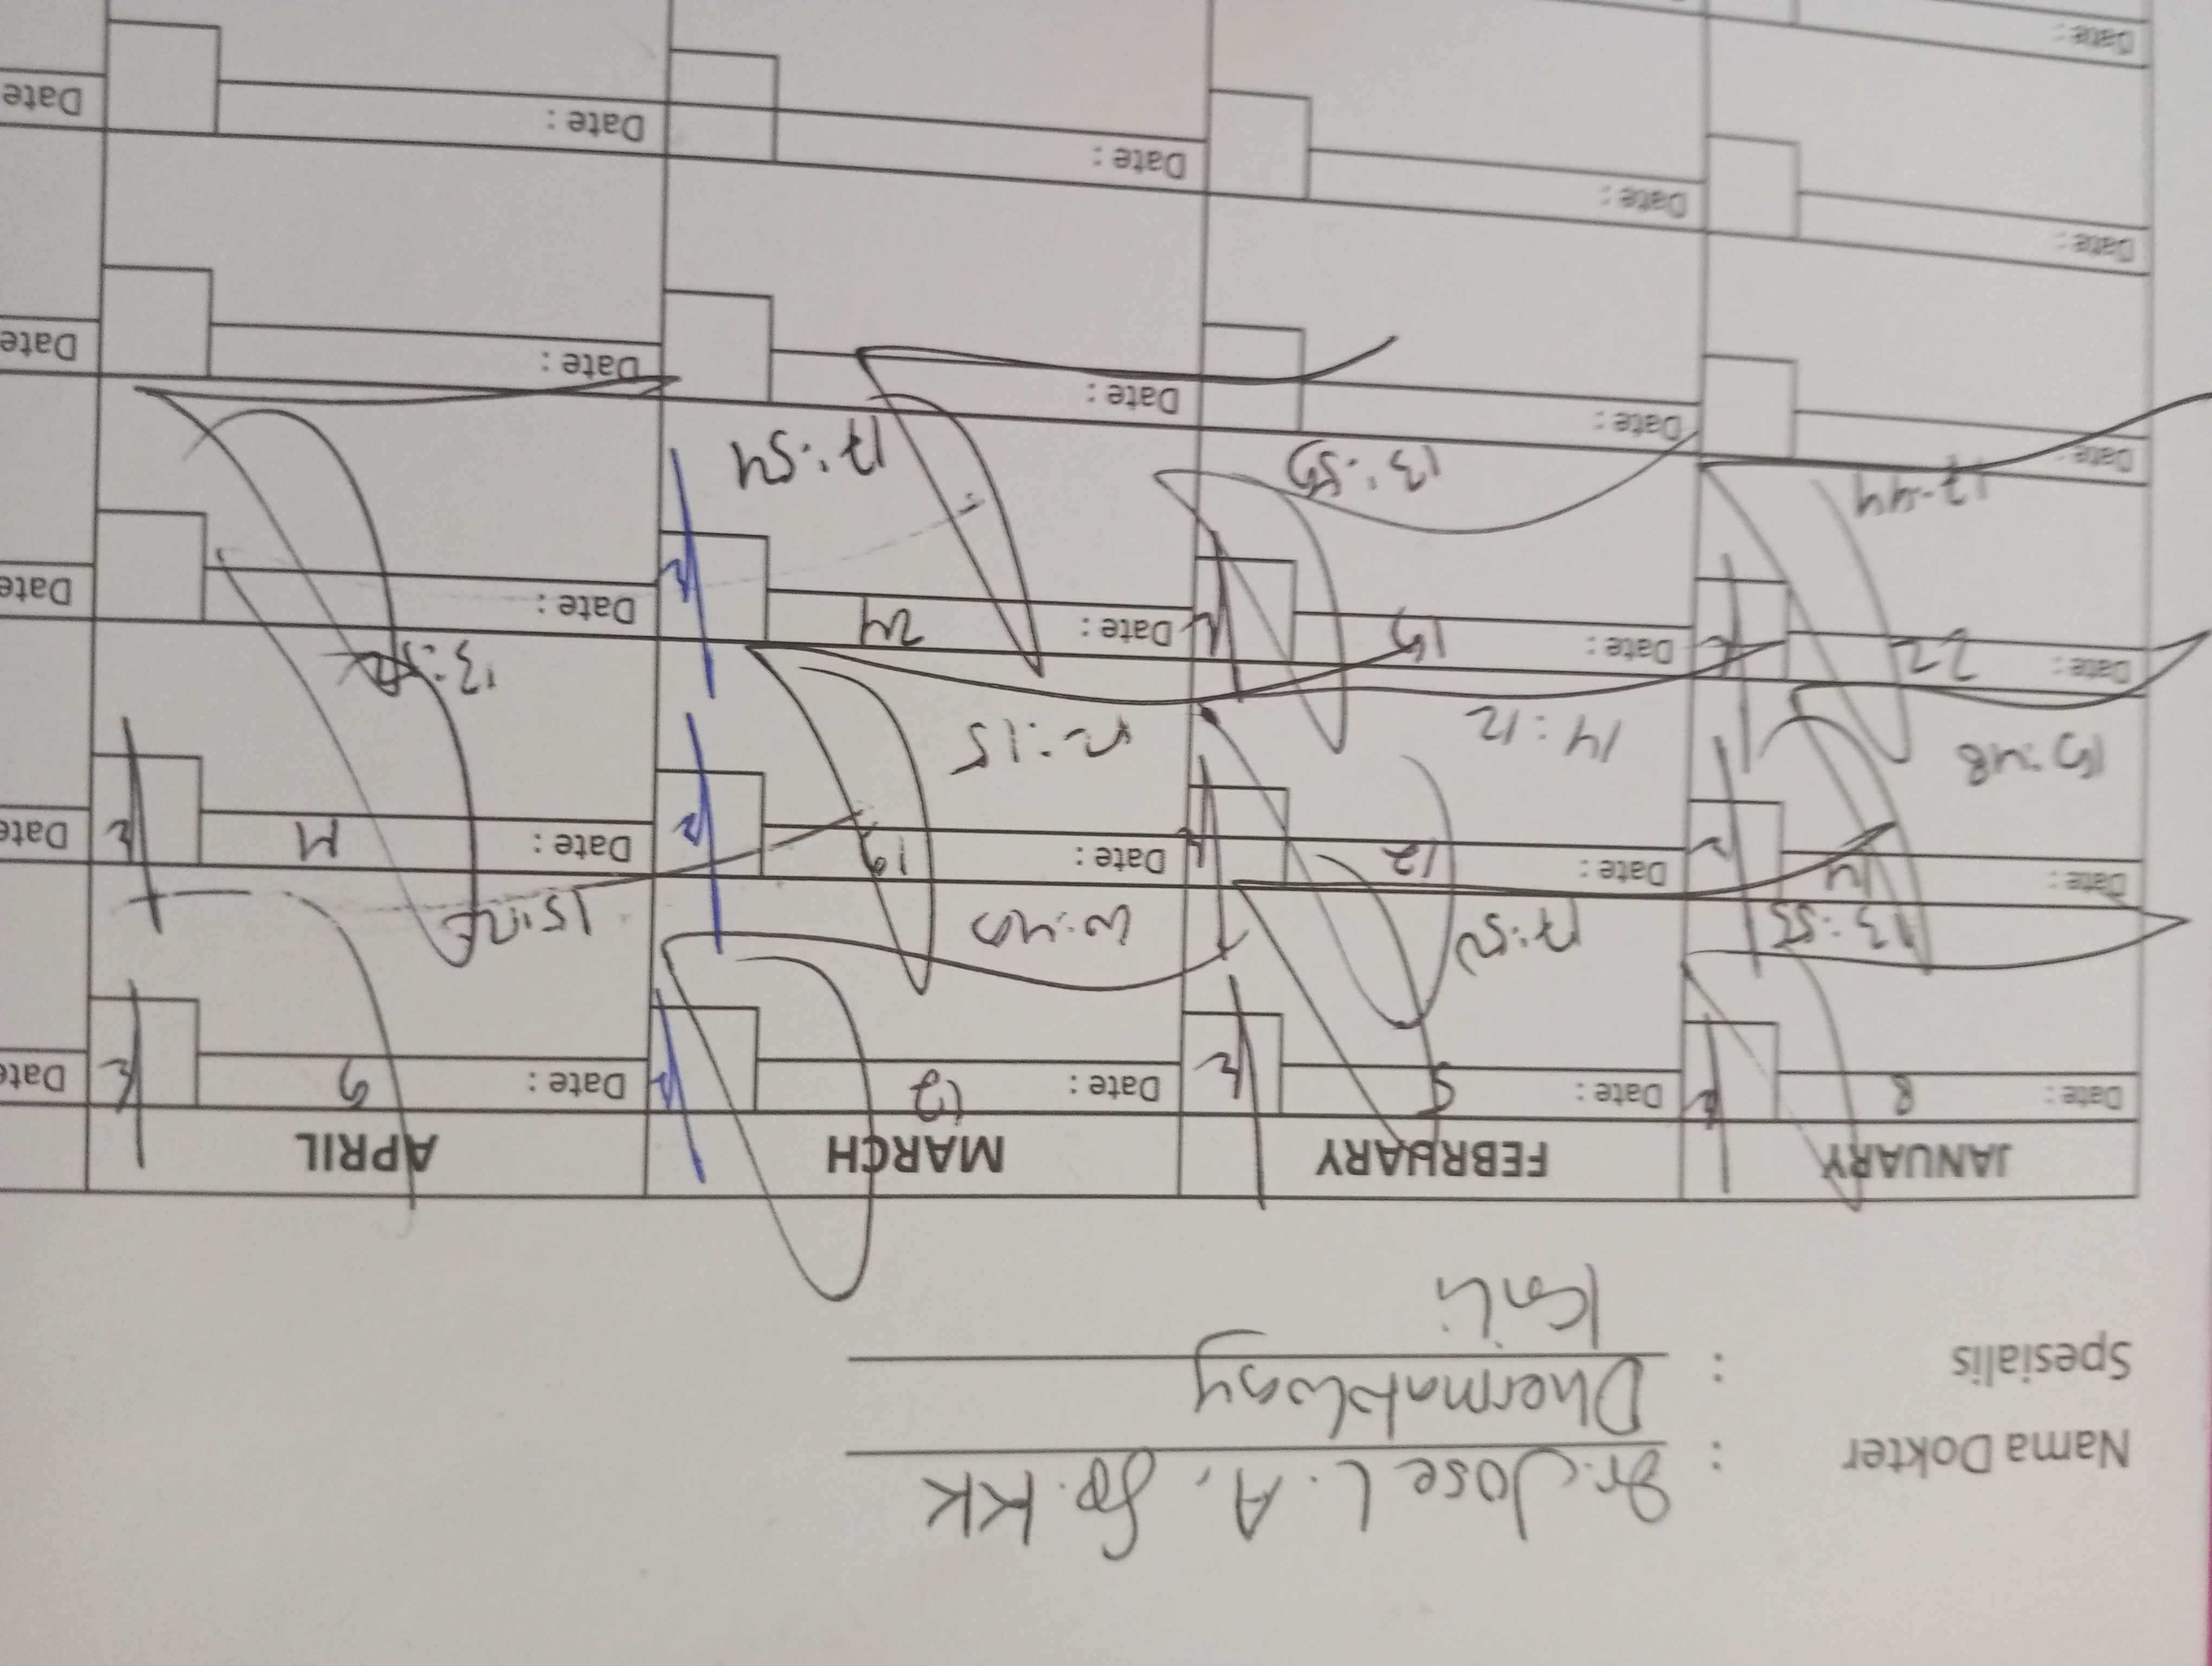 Nama Dokter : Dr. Jose L. A, Sp. KK
Spesialis : Dhermatology
Kulit
JANUARY FEBRUARY MARCH APRIL
Date : 8 Date : 5 Date : 12 Date : 9 Date
13:55 17:50 15:12
Date : 14 Date : 12 Date : 19 Date : Date
15:48 14:12 12:15 13:
Date : 22 Date : 19 Date : 24 Date : Date
17-44 13:50 17:54
Date : Date : Date : Date : Date
Date : Date : Date : Date : Date
Date :